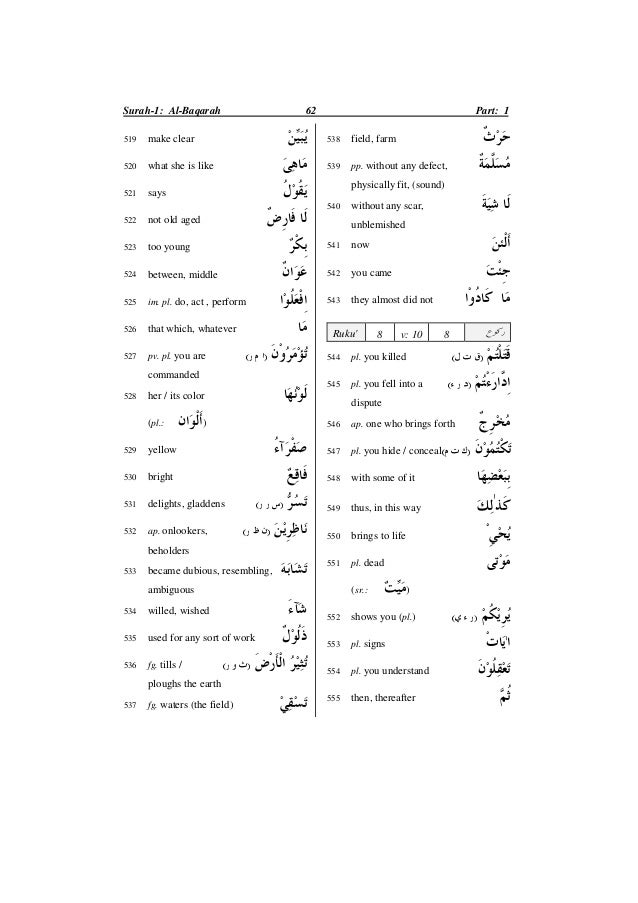 Surah-1: Al-Baqarah 62 Part: 1
519 make clear يُبَيِّنْ
520 what she is like مَاهِىَ
521 says يَقُوْلُ
522 not old aged لَا فَارِضٌ
523 too young بِكْرٌ
524 between, middle عَوَانٌ
525 im. pl. do, act , perform اِفْعَلُوْا
526 that which, whatever مَا
527 pv. pl. you are (ا م ر) تُؤْمَرُوْنَ
commanded
528 her / its color لَوْنُهَا
(pl.: أَلْوَان)
529 yellow صَفْرَآءُ
530 bright فَاقِعٌ
531 delights, gladdens (س ر ر) تَسُرُّ
532 ap. onlookers, (ن ظ ر) نَاظِرِيْنَ
beholders
533 became dubious, resembling, تَشَابَهَ
ambiguous
534 willed, wished شَآءَ
535 used for any sort of work ذَلُوْلٌ
536 fg. tills / (ث و ر) تُثِيْرُ الْأَرْضَ
ploughs the earth
537 fg. waters (the field) تَسْقِيْ
538 field, farm حَرْثٌ
539 pp. without any defect, مُسَلَّمَةٌ
physically fit, (sound)
540 without any scar, لَا شِيَةَ
unblemished
541 now أَلْئٰنَ
542 you came جِئْتَ
543 they almost did not مَا كَادُوْا
Ruku' 8 v: 10 8 رکوع
544 pl. you killed (ق ت ل) قَتَلْتُمْ
545 pl. you fell into a (د ر ء) اِدَّارَءْتُمْ
dispute
546 ap. one who brings forth مُخْرِجٌ
547 pl. you hide / conceal(ك ت م) تَكْتُمُوْنَ
548 with some of it بِبَعْضِهَا
549 thus, in this way كَذٰلِكَ
550 brings to life يُحْيِ
551 pl. dead مَوْتٰى
(sr.: مَيِّتٌ)
552 shows you (pl.) (ر ء ي) يُرِيْكُمْ
553 pl. signs اٰيَاتٌ
554 pl. you understand تَعْقِلُوْنَ
555 then, thereafter ثُمَّ